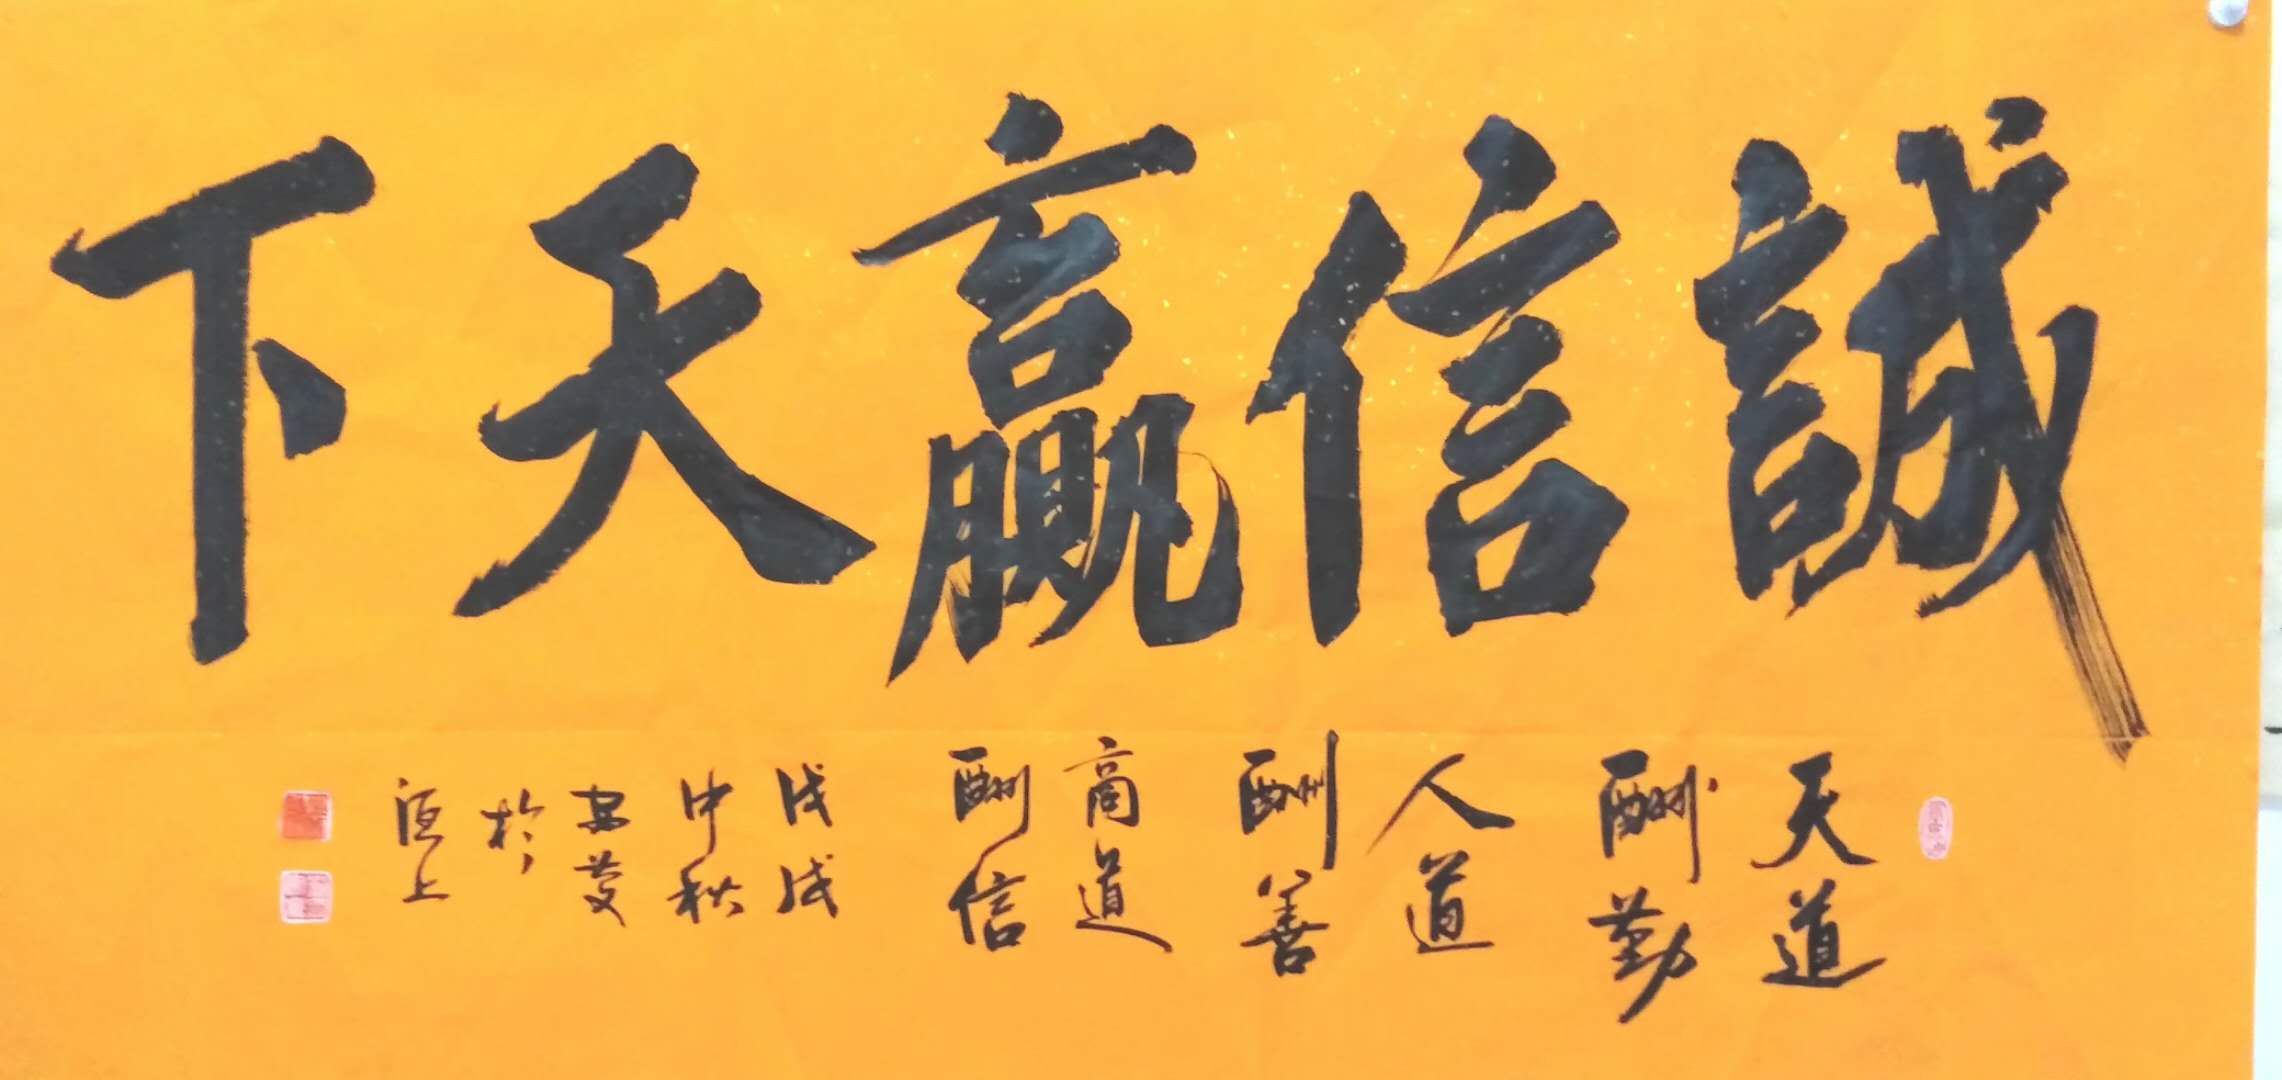 誠信贏天下
天道
酬勤
人道
酬善
商道
酬信
戊戌
中秋
於
上